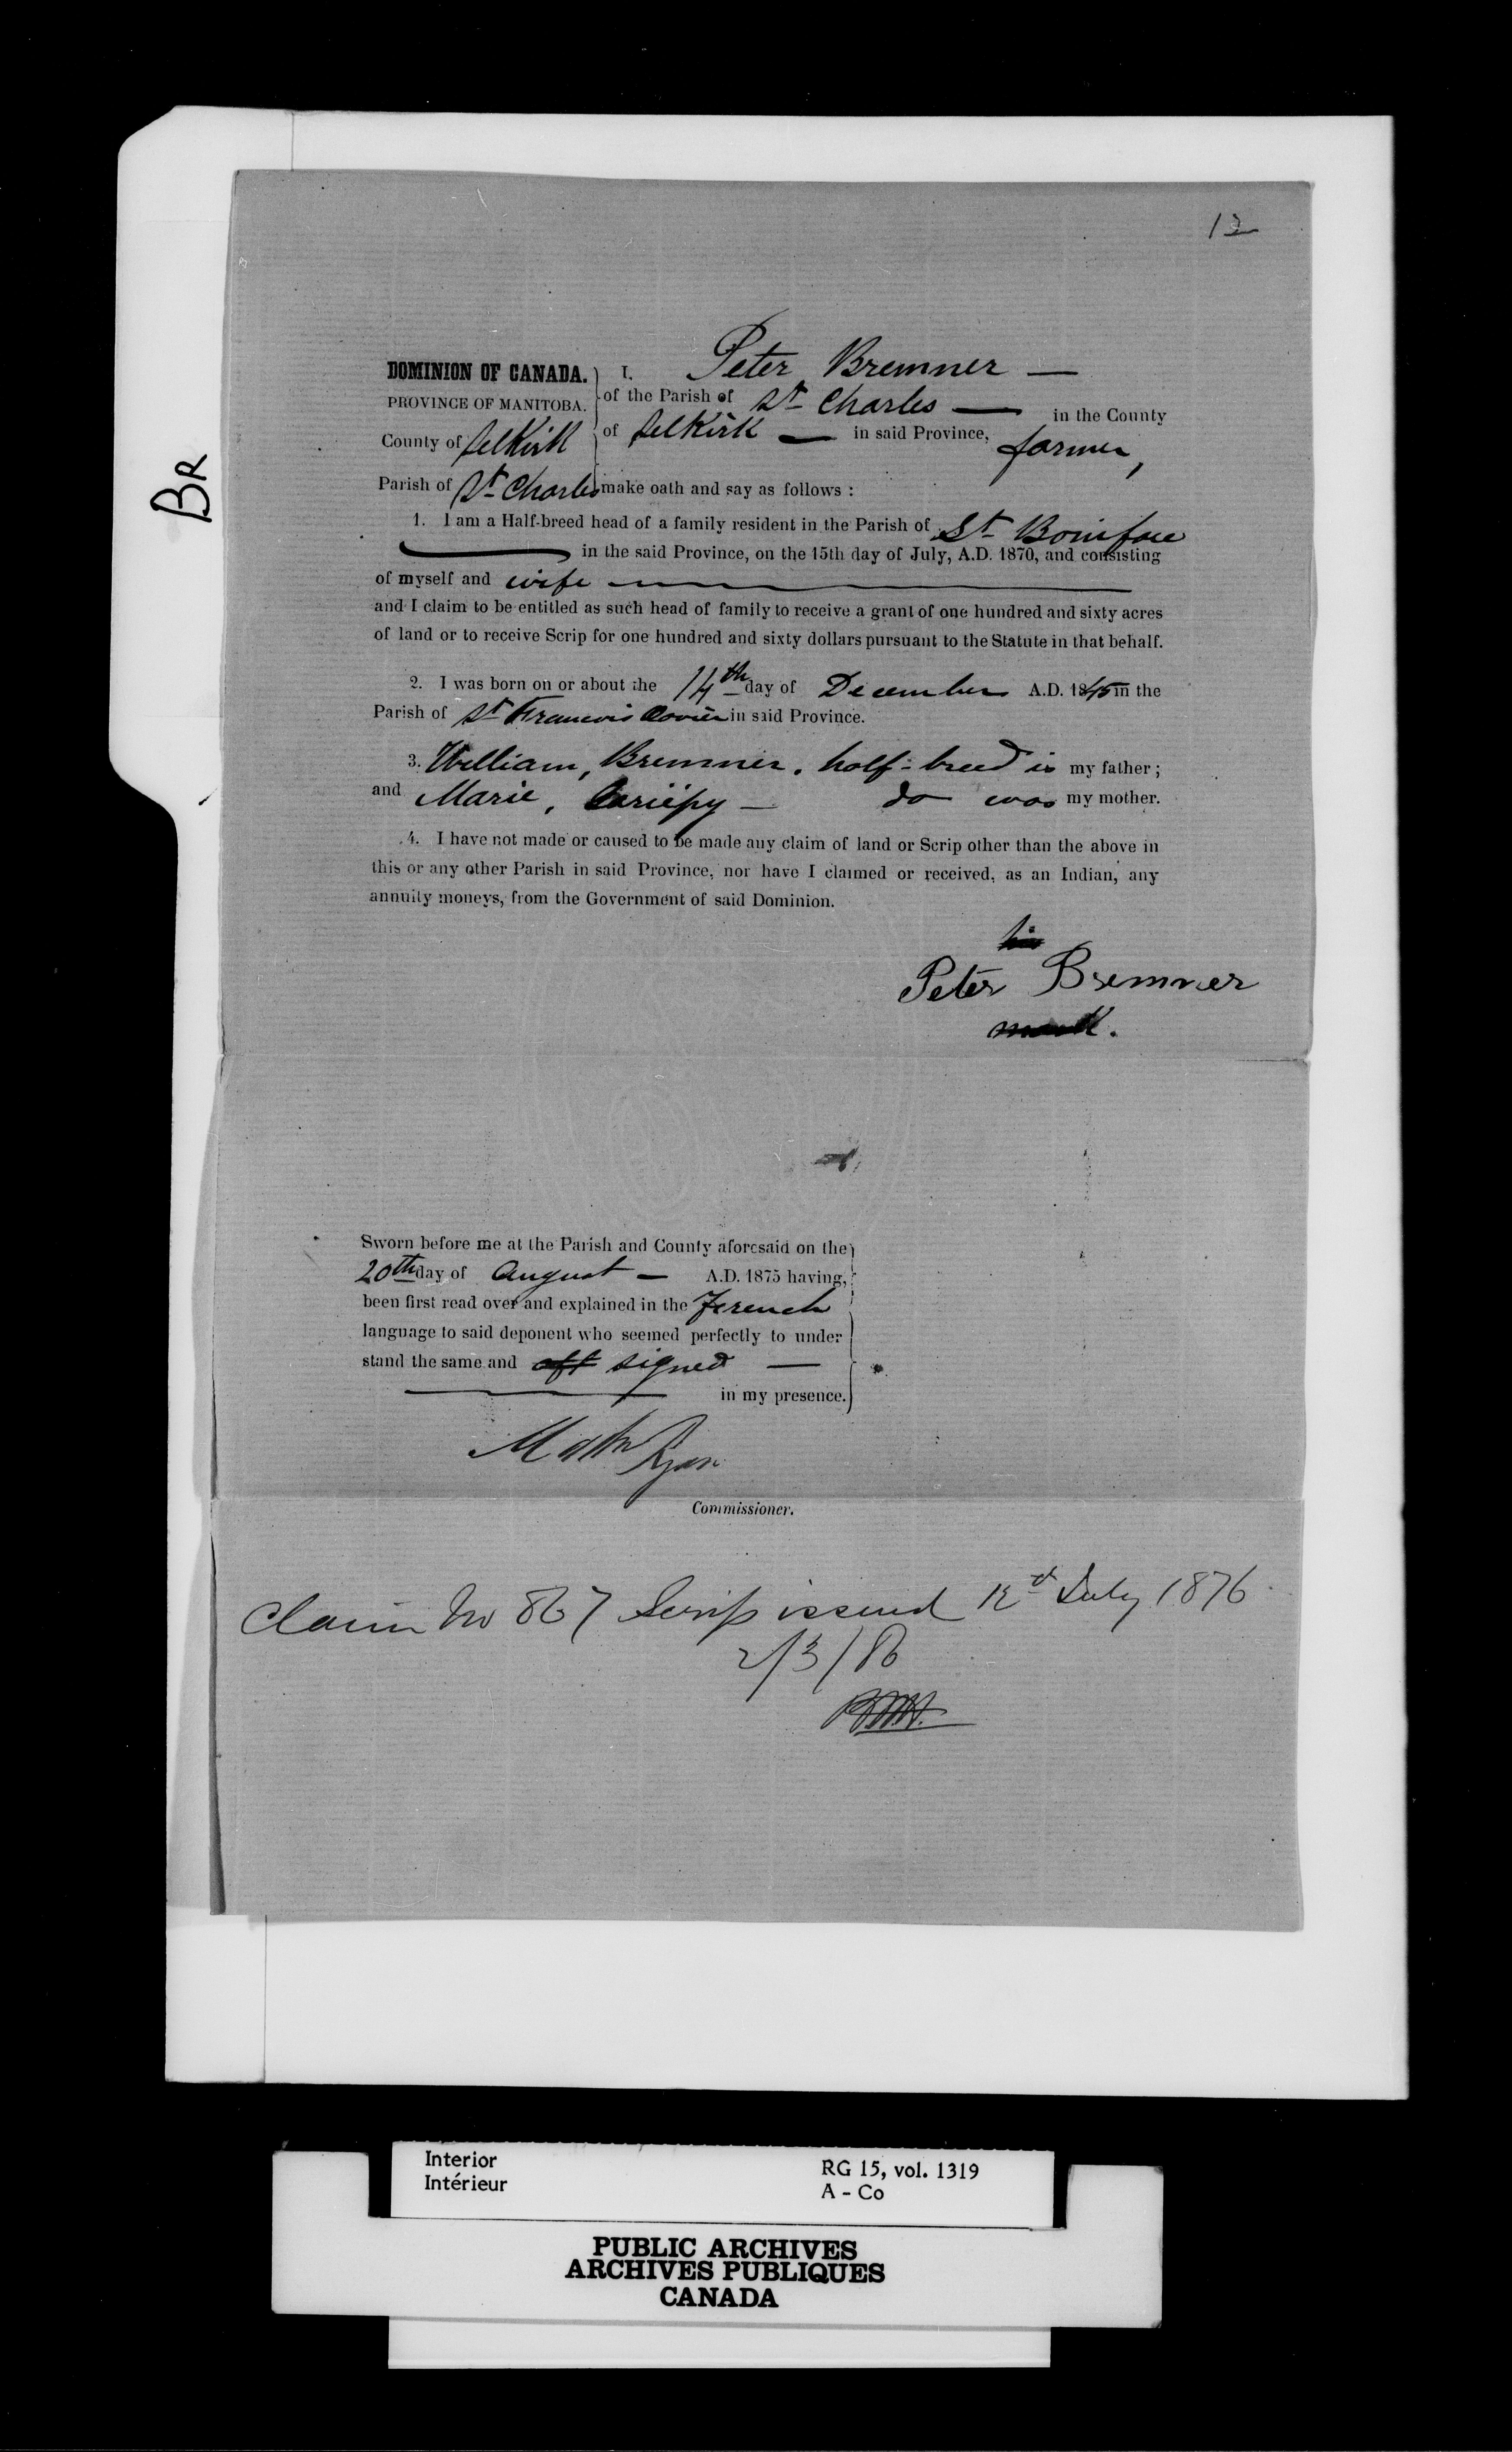 12
BR
DOMINION OF CANADA.
PROVINCE OF MANITOBA.
County of Selkirk
Parish of St Charles
I, Peter Bremner —
of the Parish of St Charles — in the County
of Selkirk — in said Province, farmer,
make oath and say as follows :
1. I am a Half-breed head of a family resident in the Parish of St Boniface
in the said Province, on the 15th day of July, A.D. 1870, and consisting
of myself and wife
and I claim to be entitled as such head of family to receive a grant of one hundred and sixty acres
of land or to receive Scrip for one hundred and sixty dollars pursuant to the Statute in that behalf.
2. I was born on or about the 14th day of December A.D. 1845 in the
Parish of St Francois Xavier in said Province.
3. William, Bremner, half-breed is my father ;
and Marie, Gariépy — do was my mother.
4. I have not made or caused to be made any claim of land or Scrip other than the above in
this or any other Parish in said Province, nor have I claimed or received, as an Indian, any
annuity moneys, from the Government of said Dominion.
his
Peter Bremner
mark.
Sworn before me at the Parish and County aforesaid on the
20th day of August — A.D. 1875 having,
been first read over and explained in the French
language to said deponent who seemed perfectly to under
stand the same and aft signed —
in my presence.
Math Ryan
Commissioner.
Claim No 867 Scrip issued 12d July 1876
2/3/86
Interior
Intérieur
RG 15, vol. 1319
A - Co
PUBLIC ARCHIVES
ARCHIVES PUBLIQUES
CANADA